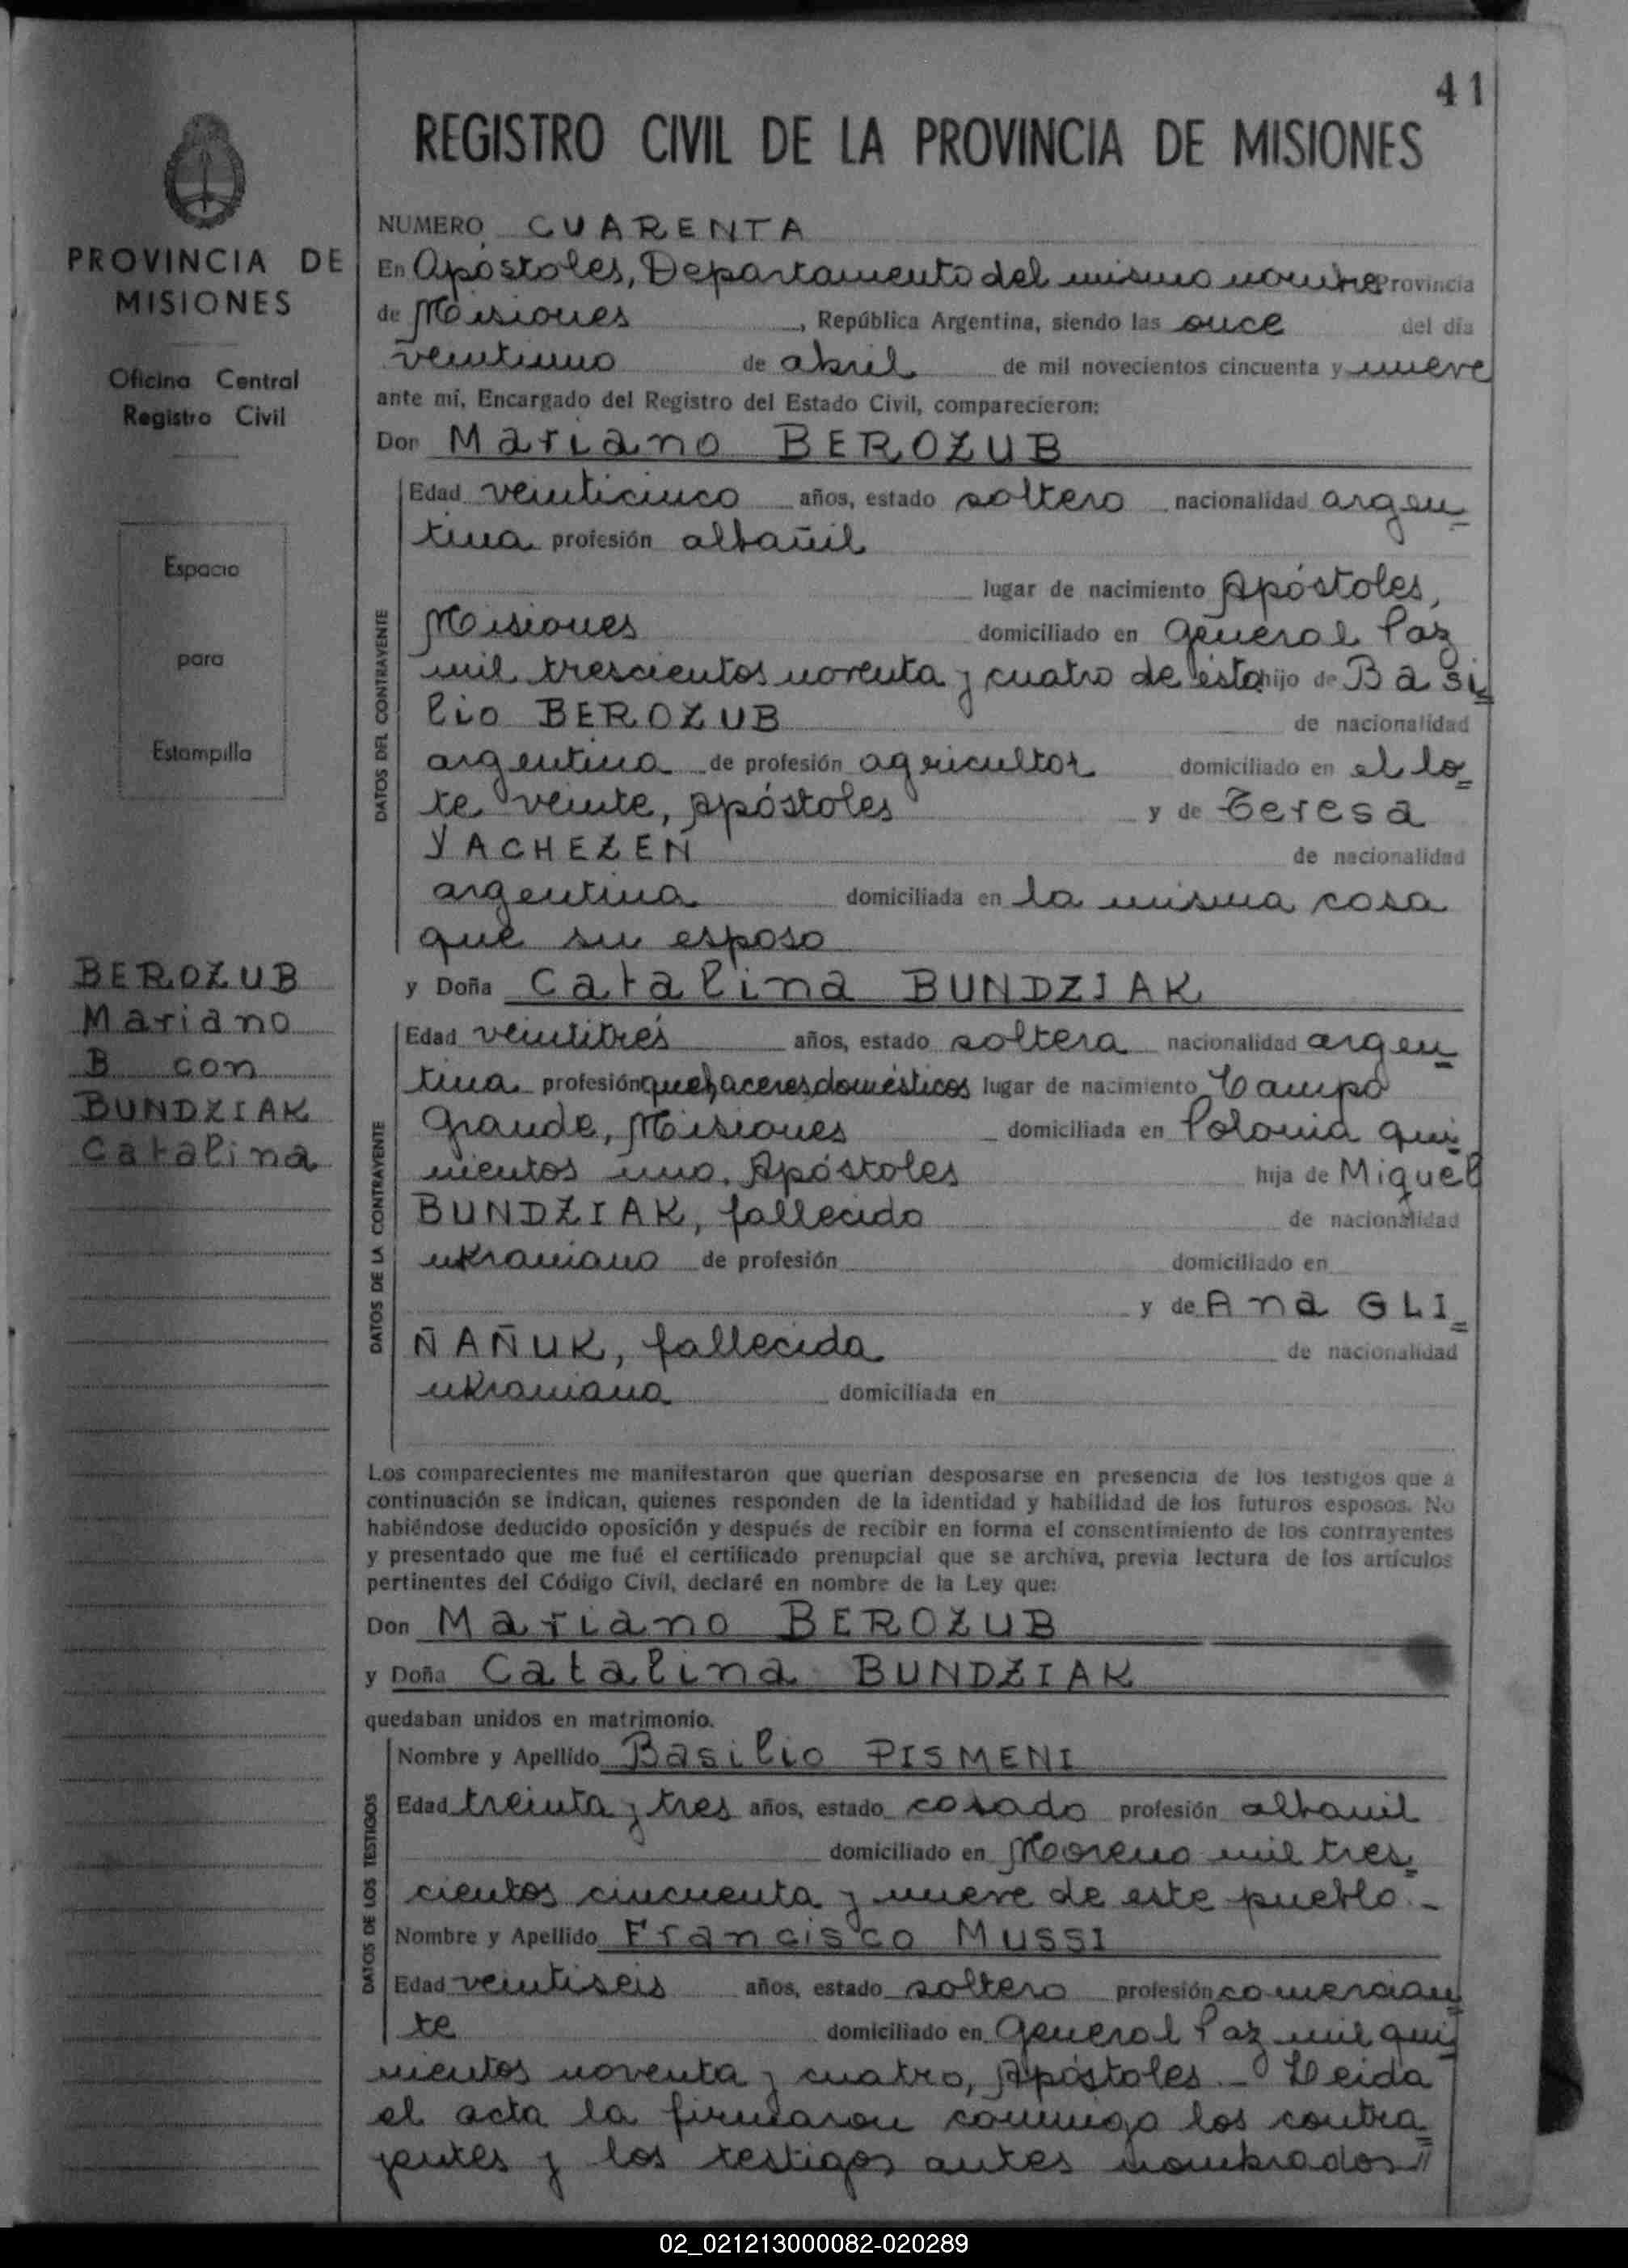 41
REGISTRO CIVIL DE LA PROVINCIA DE MISIONES
PROVINCIA DE
MISIONES
Oficina Central
Registro Civil
Espacio
para
Estampilla
BEROZUB
Mariano
B con
BUNDZIAK
Catalina
NUMERO CUARENTA
En Apóstoles, Departamento del mismo nombre Provincia
de Misiones, República Argentina, siendo las once del día
veintiuno de abril de mil novecientos cincuenta y nueve
ante mí, Encargado del Registro del Estado Civil, comparecieron:
Don Mariano BEROZUB
DATOS DEL CONTRAYENTE
Edad veinticinco años, estado soltero nacionalidad argen=
tina profesión albañil
lugar de nacimiento Apóstoles,
Misiones domiciliado en General Paz
mil trescientos noventa y cuatro de ésta hijo de Basi=
lio BEROZUB de nacionalidad
argentina de profesión agricultor domiciliado en el lo=
te veinte, Apóstoles y de Teresa
YACHEZEN de nacionalidad
argentina domiciliada en la misma casa
que su esposo
y Doña Catalina BUNDZIAK
DATOS DE LA CONTRAYENTE
Edad veintitrés años, estado soltera nacionalidad argen=
tina profesión quehaceres domésticos lugar de nacimiento Campo
Grande, Misiones domiciliada en Polonia qui=
nientos uno. Apóstoles hija de Miguel
BUNDZIAK, fallecido de nacionalidad
ukraniano de profesión domiciliado en
y de Ana GLI=
ÑAÑUK, fallecida de nacionalidad
ukraniana domiciliada en
Los comparecientes me manifestaron que querían desposarse en presencia de los testigos que a
continuación se indican, quienes responden de la identidad y habilidad de los futuros esposos. No
habiéndose deducido oposición y después de recibir en forma el consentimiento de los contrayentes
y presentado que me fué el certificado prenupcial que se archiva, previa lectura de los artículos
pertinentes del Código Civil, declaré en nombre de la Ley que:
Don Mariano BEROZUB
y Doña Catalina BUNDZIAK
quedaban unidos en matrimonio.
DATOS DE LOS TESTIGOS
Nombre y Apellido Basilio PISMENI
Edad treinta y tres años, estado casado profesión albañil
domiciliado en Moreno mil tres=
cientos cincuenta y nueve de este pueblo.-
Nombre y Apellido Francisco MUSSI
Edad veintiseis años, estado soltero profesión comercian=
te domiciliado en General Paz mil qui=
nientos noventa y cuatro, Apóstoles.- Leida
el acta la firmaron conmigo los contra=
yentes y los testigos antes nombrados//
02_021213000082-020289